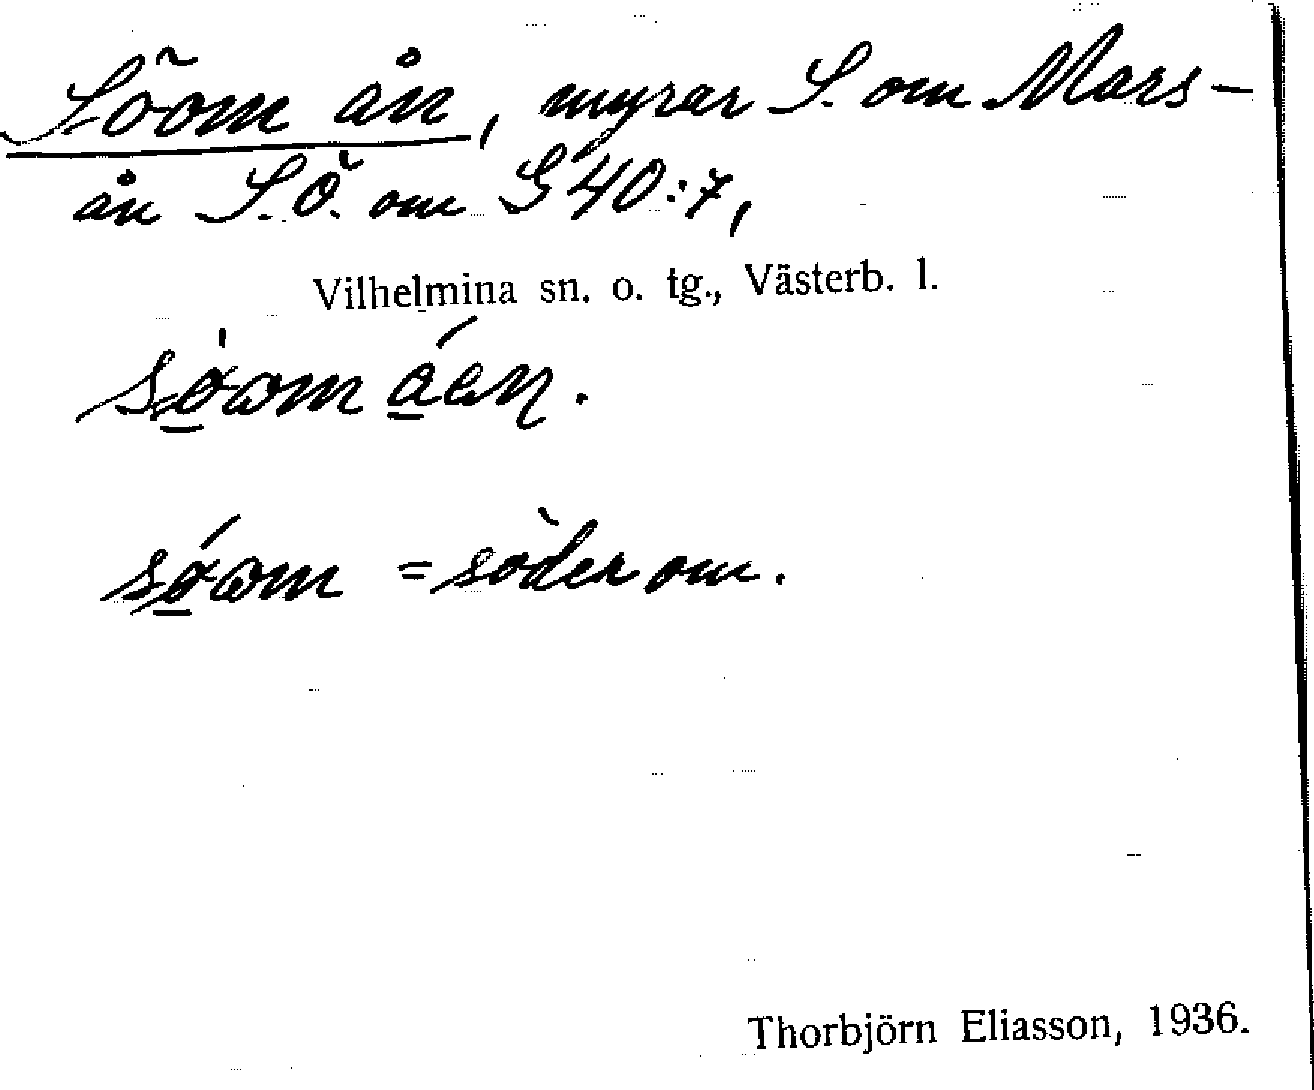 Söom ån, myrar S. om Mars-
ån S.Ö. om G 40:7,
Vilhelmina sn. o. tg., Västerb. l.
sǿ̱om á̱en.
sǿ̱om = söder om.
Thorbjörn Eliasson, 1936.